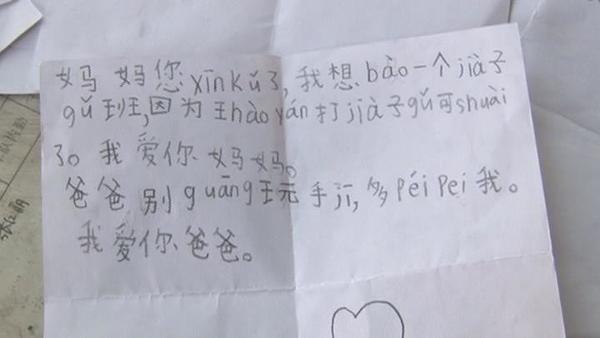 妈妈您xīnkǔ了,我想bào一个jià子
gǔ班,因为王hào yán打jià子gǔ可shuài
了。我爱你妈妈。
爸爸别guāng王元手几,多péi pei我。
我爱你爸爸。